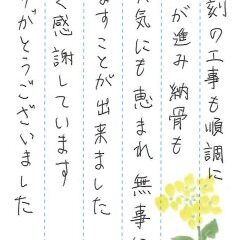 刻の工事も順調に
が進み 納骨も
天気にも恵まれ無事に
ますことが出来ました
く感謝しています
りがとうございました